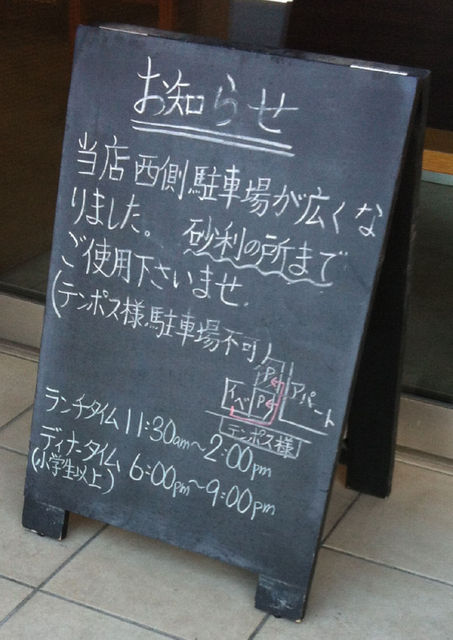 お知らせ
当店西側駐車場が広くな
りました。砂利の所まで
ご使用下さいませ.
(テンポス様駐車場不可)
P
P
アパート
テンポス様
ランチタイム 11:30am〜2:00pm
ディナータイム 6:00pm〜9:00pm
(小学生以上)